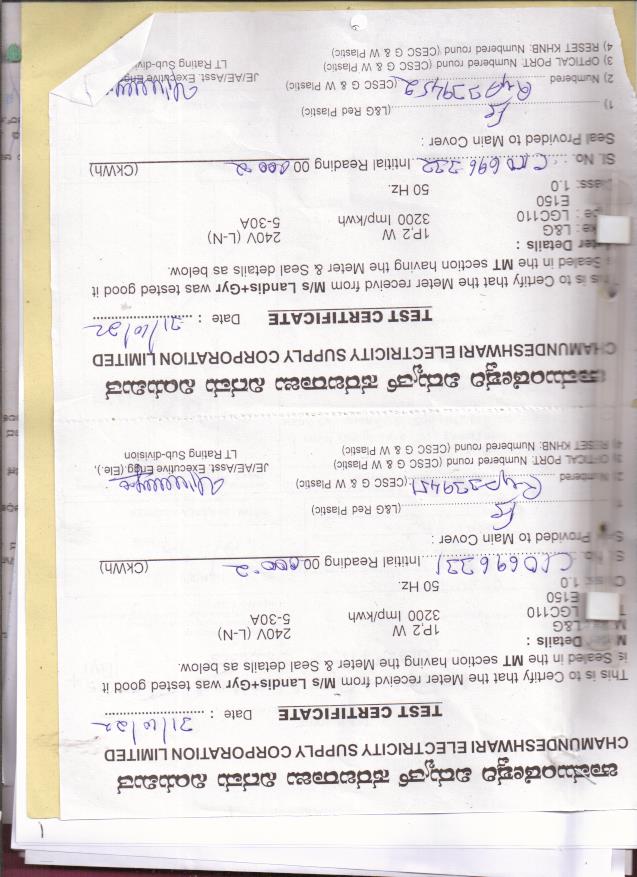 ಚಾಮುಂಡೇಶ್ವರಿ ವಿದ್ಯುತ್ ಸರಬರಾಜು ನಿಗಮ ನಿಯಮಿತ
CHAMUNDESHWARI ELECTRICITY SUPPLY CORPORATION LIMITED
TEST CERTIFICATE Date :
This is to Certify that the Meter recivrd from M/s Landis+Gyr was tested good it
is Sealed in the MT section having the Meter & Seal details as below.
Details :
L&G 1P,2 W 240V (L-N)
LGC110 3200 Imp/kwh 5-30A
E150
1.0 50 Hz.
No. Intitial Reading 00 000.2 (CKWh)
Provided to Main Cover :
(L&G Red Plastic)
2) Numbered (CESC G & W Plastic)
3) OPTICAL PORT: Numbered round (CESC G & W Plastic)
4) RESET KHNB: Numbered round (CESC G & W Plastic)
JE/AE/Asst. Executive Engg.(Ele.),
LT Rating Sub-division
ಚಾಮುಂಡೇಶ್ವರಿ ವಿದ್ಯುತ್ ಸರಬರಾಜು ನಿಗಮ ನಿಯಮಿತ
CHAMUNDESHWARI ELECTRICITY SUPPLY CORPORATION LIMITED
TEST CERTIFICATE Date :
This is to Certify that the Meter recivrd from M/s Landis+Gyr was tested good it
is Sealed in the MT section having the Meter & Seal details as below.
Details :
L&G 1P,2 W 240V (L-N)
LGC110 3200 Imp/kwh 5-30A
E150
1.0 50 Hz.
Sl. No. Intitial Reading 00 000.2 (CKWh)
Seal Provided to Main Cover :
1) (L&G Red Plastic)
2) Numbered (CESC G & W Plastic)
3) OPTICAL PORT. Numbered round (CESC G & W Plastic)
4) RESET KHNB: Numbered round (CESC G & W Plastic)
JE/AE/Asst. Executive
LT Rating Sub-divi